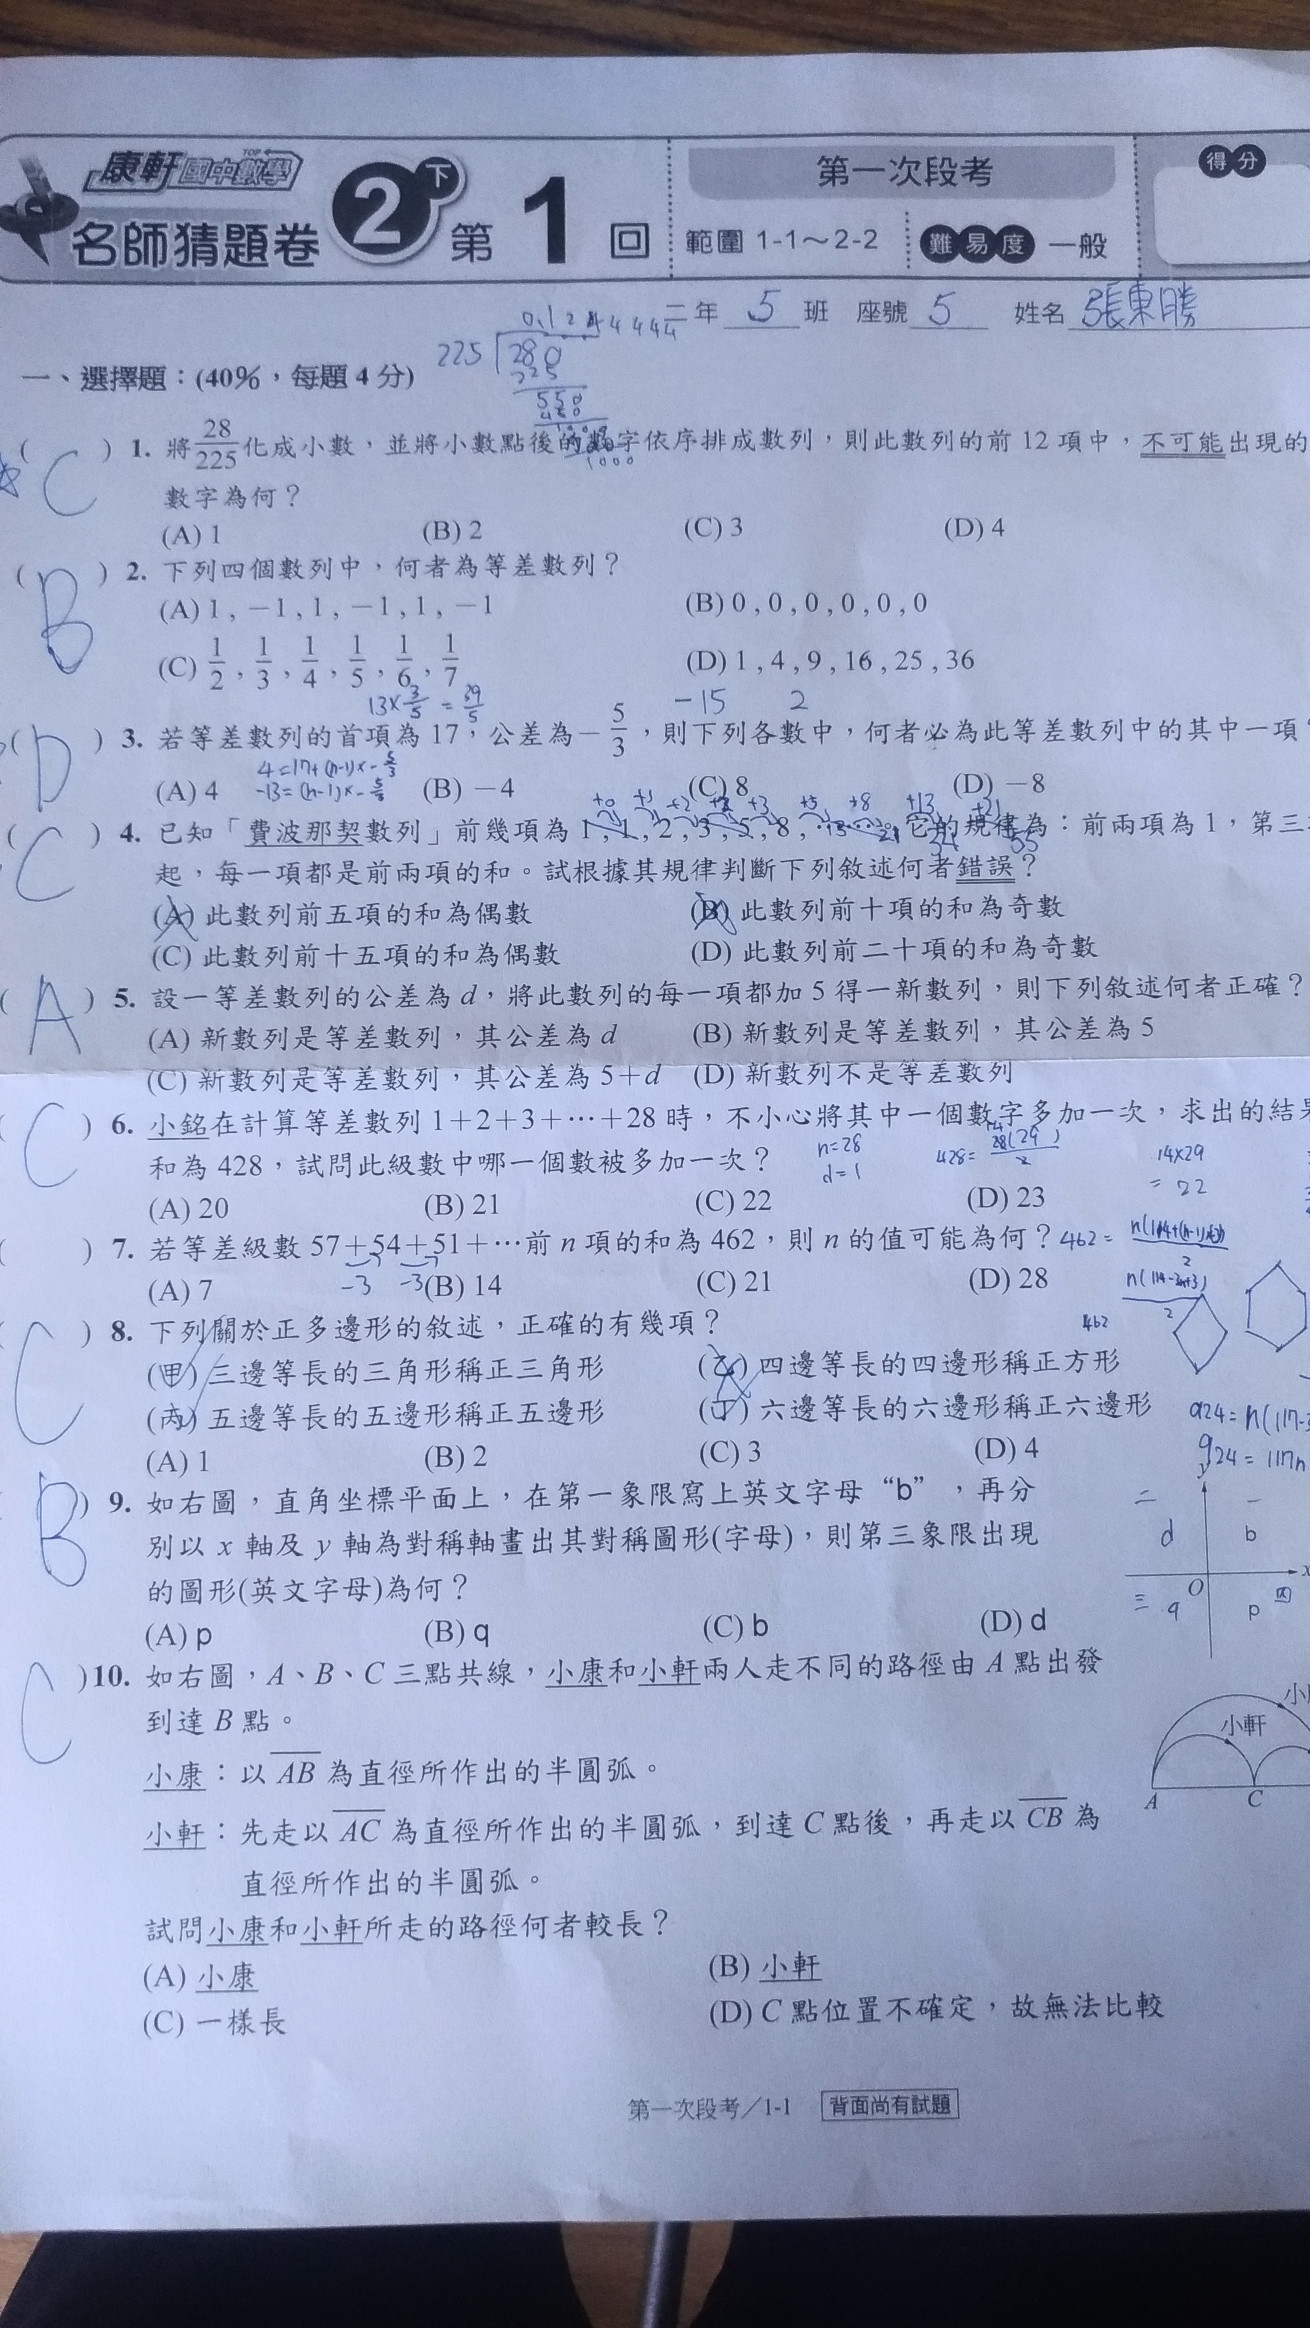 康軒國中數學 TOP
名師猜題卷 2下 第1回
第一次段考
範圍 1-1～2-2 難易度 一般
得分
二年 5 班 座號 5 姓名 張東勝
0.12444444
225 280
225
550
450
1000
一、選擇題：(40%，每題 4 分)
( C ) 1. 將28/225化成小數，並將小數點後的數字依序排成數列，則此數列的前 12 項中，不可能出現的
數字為何？
(A) 1 (B) 2 (C) 3 (D) 4
( B ) 2. 下列四個數列中，何者為等差數列？
(A) 1 , －1 , 1 , －1 , 1 , －1 (B) 0 , 0 , 0 , 0 , 0 , 0
(C) 1/2 , 1/3 , 1/4 , 1/5 , 1/6 , 1/7 (D) 1 , 4 , 9 , 16 , 25 , 36
13×3/5 = 39/5 －15 2
( D ) 3. 若等差數列的首項為 17，公差為－5/3，則下列各數中，何者必為此等差數列中的其中一項
4=17+(n-1)×-5/3
-13=(n-1)×-5/3
(A) 4 (B) －4 (C) 8 (D) －8
+0 +1 +2 +3 +5 +8 +13 +21
( C ) 4. 已知「費波那契數列」前幾項為 1 , 1 , 2 , 3 , 5 , 8 , …… 它的規律為：前兩項為 1，第三
21 34 55
起，每一項都是前兩項的和。試根據其規律判斷下列敘述何者錯誤？
(A) 此數列前五項的和為偶數 (B) 此數列前十項的和為奇數
(C) 此數列前十五項的和為偶數 (D) 此數列前二十項的和為奇數
( A ) 5. 設一等差數列的公差為 d，將此數列的每一項都加 5 得一新數列，則下列敘述何者正確？
(A) 新數列是等差數列，其公差為 d (B) 新數列是等差數列，其公差為 5
(C) 新數列是等差數列，其公差為 5＋d (D) 新數列不是等差數列
( C ) 6. 小銘在計算等差數列 1＋2＋3＋…＋28 時，不小心將其中一個數字多加一次，求出的結果
和為 428，試問此級數中哪一個數被多加一次？
n=28
d=1
428= 28(29)/2
14
14×29
= 22
(A) 20 (B) 21 (C) 22 (D) 23
( ) 7. 若等差級數 57＋54＋51＋…前 n 項的和為 462，則 n 的值可能為何？
462= n(114+(n-1)×-3)/2
-3 -3
(A) 7 (B) 14 (C) 21 (D) 28
n(114-3n+3)/2
462
( C ) 8. 下列關於正多邊形的敘述，正確的有幾項？
(甲) 三邊等長的三角形稱正三角形 (乙) 四邊等長的四邊形稱正方形
(丙) 五邊等長的五邊形稱正五邊形 (丁) 六邊等長的六邊形稱正六邊形
924=n(117-3
924=117n
(A) 1 (B) 2 (C) 3 (D) 4
( B ) 9. 如右圖，直角坐標平面上，在第一象限寫上英文字母“b”，再分
別以 x 軸及 y 軸為對稱軸畫出其對稱圖形(字母)，則第三象限出現
的圖形(英文字母)為何？
y
二 一
d b
O x
三 q p 四
(A) p (B) q (C) b (D) d
( C )10. 如右圖，A、B、C 三點共線，小康和小軒兩人走不同的路徑由 A 點出發
到達 B 點。
小康：以 AB 為直徑所作出的半圓弧。
小
小軒
A C
小軒：先走以 AC 為直徑所作出的半圓弧，到達 C 點後，再走以 CB 為
直徑所作出的半圓弧。
試問小康和小軒所走的路徑何者較長？
(A) 小康 (B) 小軒
(C) 一樣長 (D) C 點位置不確定，故無法比較
第一次段考／1-1 背面尚有試題